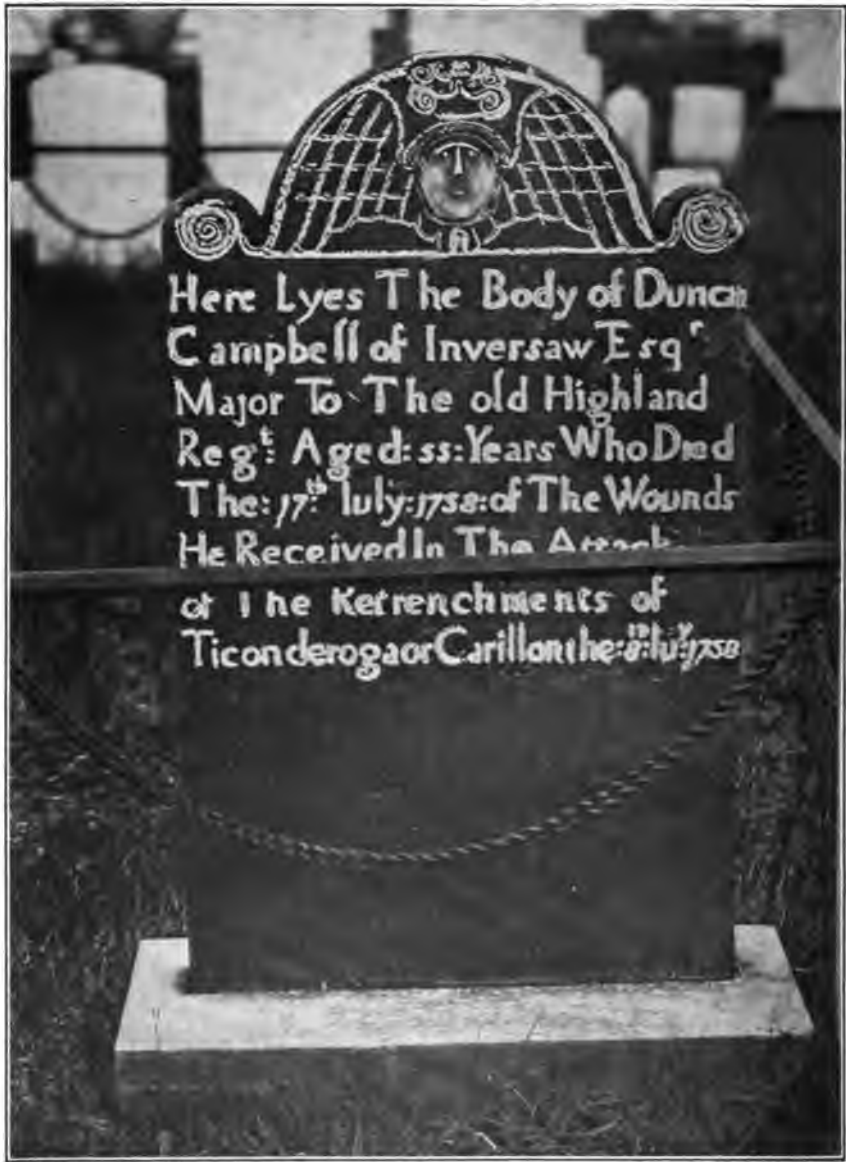 Here Lyes The Body of Duncan
Campbell of Inversaw Esqr
Major To The old Highland
Regt: Aged:55:Years Who Died
The:17th Iuly:1758:of The Wounds
He Received In The Attack
of The Retrenchments of
Ticonderoga or Carillon the:8th:Iuly:1758